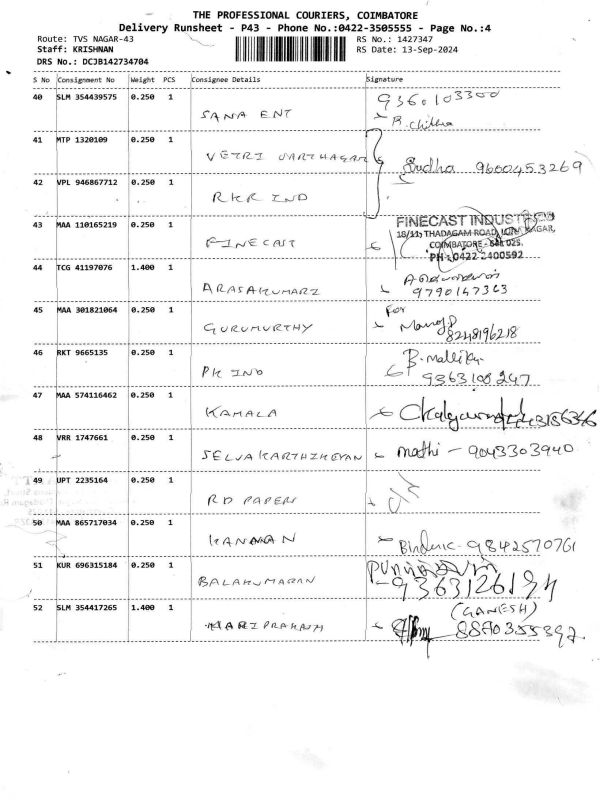 THE PROFESSIONAL COURIERS, COIMBATORE
Delivery Runsheet - P43 - Phone No.:0422-3505555 - Page No.:4
Route: TVS NAGAR-43 RS No.: 1427347
Staff: KRISHNAN RS Date: 13-Sep-2024
DRS No.: DCJB142734704
S No Consignment No Weight PCS Consignee Details Signature
40 SLM 354439575 0.250 1 SANA ENT 9360103300
R. Chitha
41 MTP 1320109 0.250 1 VETRI
Sudha 9600453269
42 VPL 946867712 0.250 1 RKR IND
43 MAA 110165219 0.250 1 FINECAST
FINECAST INDUSTRIES
18/11, THADAGAM ROAD, NAGAR,
COIMBATORE - 641 025.
PH : 0422-2400592
44 TCG 41197076 1.400 1 ARASAKUMARI
9790147363
45 MAA 301821064 0.250 1 GURUMURTHY For
Manoj P
8248196218
46 RKT 9665135 0.250 1 PK IND B. Mallika
9363100247
47 MAA 574116462 0.250 1 KAMALA
48 VRR 1747661 0.250 1 SELVAKARTHIKEYAN mathi - 9043303940
49 UPT 2235164 0.250 1 RD PAPERS
50 MAA 865717034 0.250 1 KANNAN 9842570761
51 KUR 696315184 0.250 1 BALAKUMARAN
52 SLM 354417265 1.400 1 HARIPRAKASH (GANESH)
8870355397